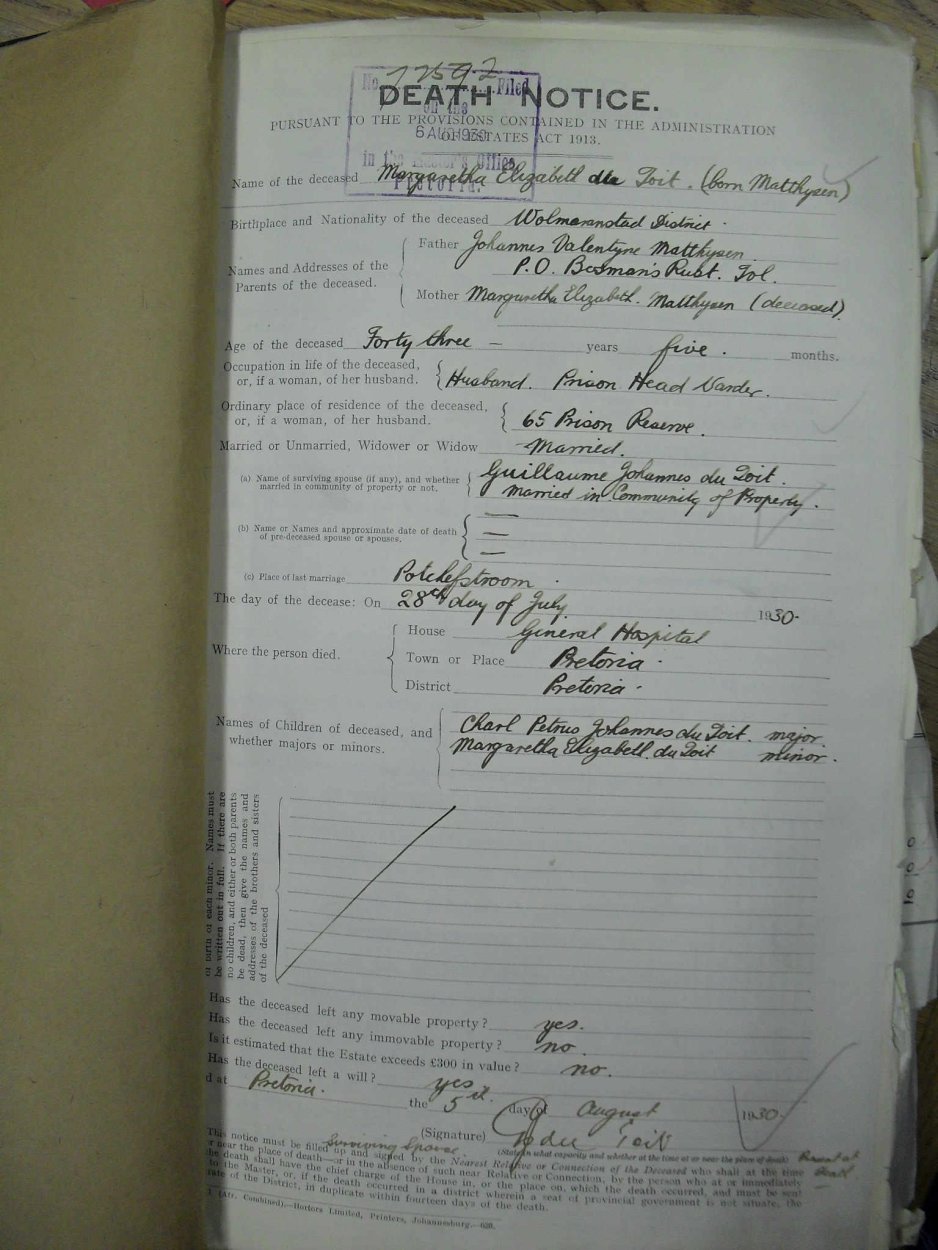 No. 72592 Filed
on the
6 AUG 1930
in the Master's Office
Pretoria.
DEATH NOTICE.
PURSUANT TO THE PROVISIONS CONTAINED IN THE ADMINISTRATION
OF ESTATES ACT 1913.
Name of the deceased Margaretha Elizabeth du Toit. (born Matthysen)
Birthplace and Nationality of the deceased Wolmaranstad District.
Names and Addresses of the Parents of the deceased. Father Johannes Valentyne Matthysen.
P.O. Bosman's Rust. Tvl.
Mother Margaretha Elizabeth. Matthysen (deceased).
Age of the deceased Forty three — years five. months.
Occupation in life of the deceased,
or, if a woman, of her husband. Husband. Prison Head Warder.
Ordinary place of residence of the deceased,
or, if a woman, of her husband. 65 Prison Reserve.
Married or Unmarried, Widower or Widow Married.
(a) Name of surviving spouse (if any), and whether Guillaume Johannes du Toit.
married in community of property or not. Married in Community of Property.
(b) Name or Names and approximate date of death
of pre-deceased spouse or spouses.
(c) Place of last marriage Potchefstroom.
The day of the decease: On 28th day of July. 1930.
Where the person died. House General Hospital
Town or Place Pretoria.
District Pretoria.
Names of Children of deceased, and Charl Petrus Johannes du Toit. major.
whether majors or minors. Margaretha Elizabeth. du Toit minor.
of birth of each minor. Names must
be written out in full. If there are
no children, and either or both parents
be dead, then give the names and
addresses of the brothers and sisters
of the deceased
Has the deceased left any movable property? yes.
Has the deceased left any immovable property? no.
Is it estimated that the Estate exceeds £300 in value? no.
Has the deceased left a will? yes
d at Pretoria. the 5th day of August 1930.
(Signature) du Toit
Surviving Spouse. (State in what capacity and whether at the time at or near the place of death) Present at Death
This notice must be filled up and signed by the Nearest Relative or Connection of the Deceased who shall at the time
or near the place of death—or in the absence of such near Relative or Connection, by the person who at or immediately
the death shall have the chief charge of the House in, or the place on, which the death occurred, and must be sent
to the Master, or, if the death occurred in a district wherein a seat of provincial government is not situate, the
rate of the District, in duplicate within fourteen days of the death.
(Att. Combined).—Hortors Limited, Printers, Johannesburg.